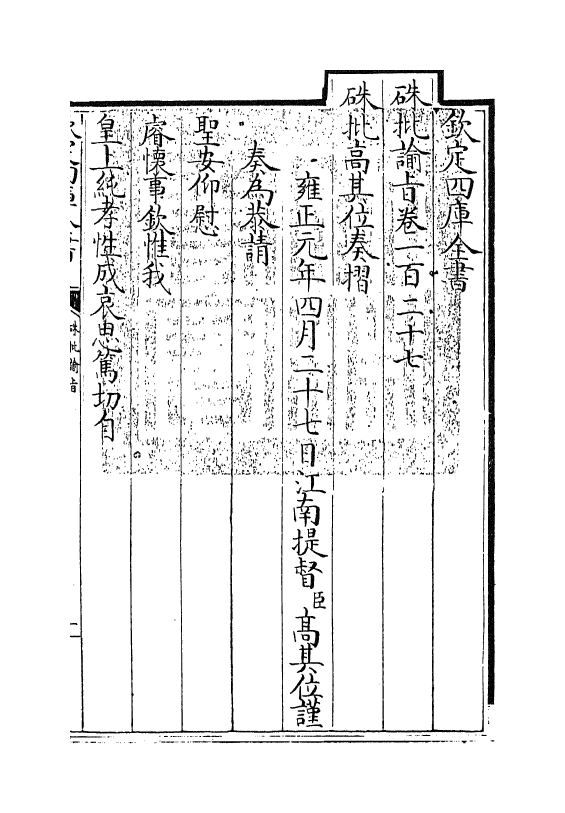 欽定四庫全書
硃批諭旨卷一百二十七
硃批高其位奏摺
雍正元年四月二十七日江南提督臣高其位謹
奏為恭請
聖安仰慰
睿懷事欽惟我
皇上純孝性成哀思篤切自
硃批諭旨
一